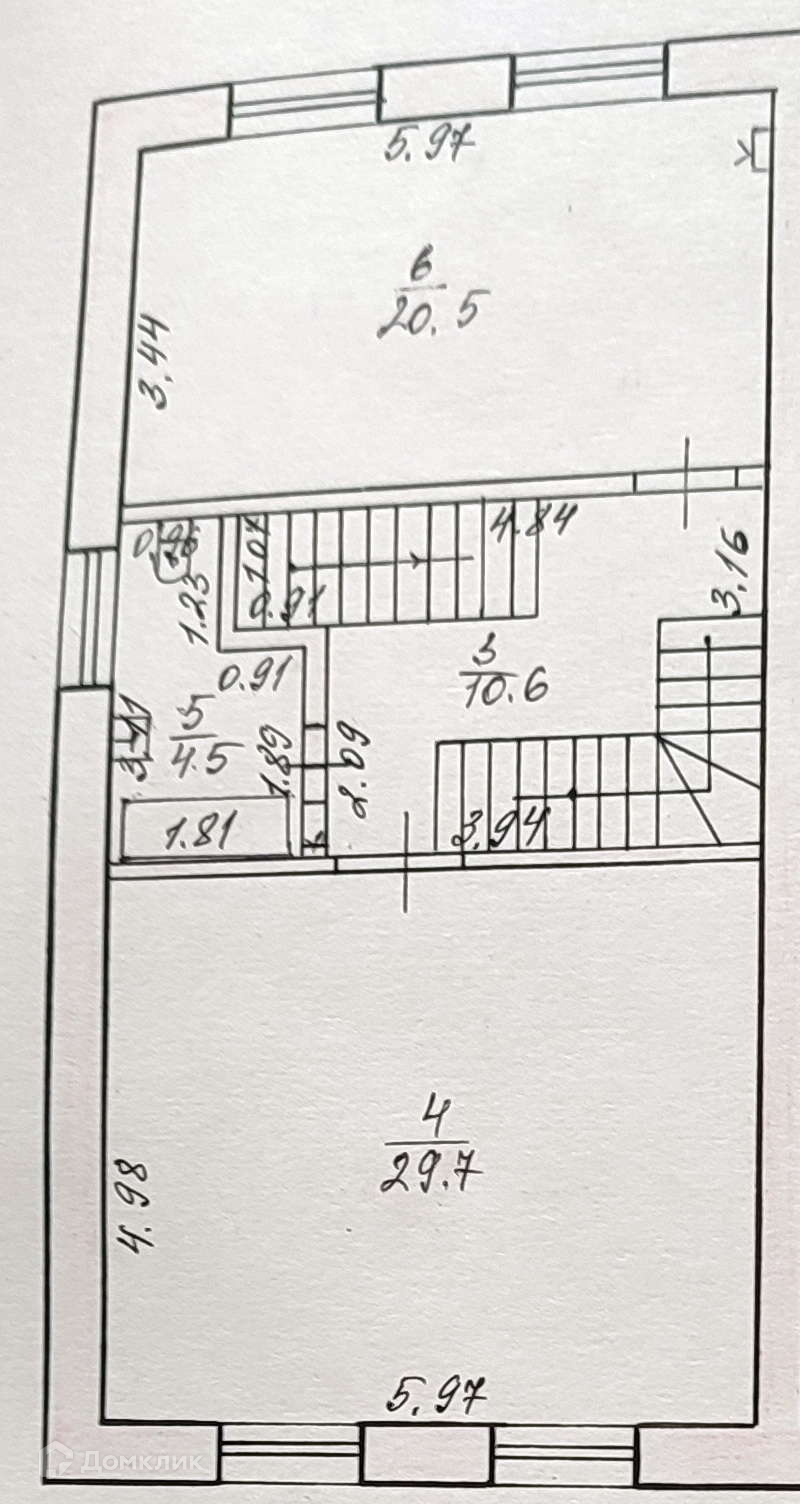 5.97
6
20.5
3.44
0.96
1.23
1.01
0.91
4.84
3.16
3
10.6
0.91
5
4.5
1.89
2.09
1.81
3.94
4
29.7
4.98
5.97
Домклик